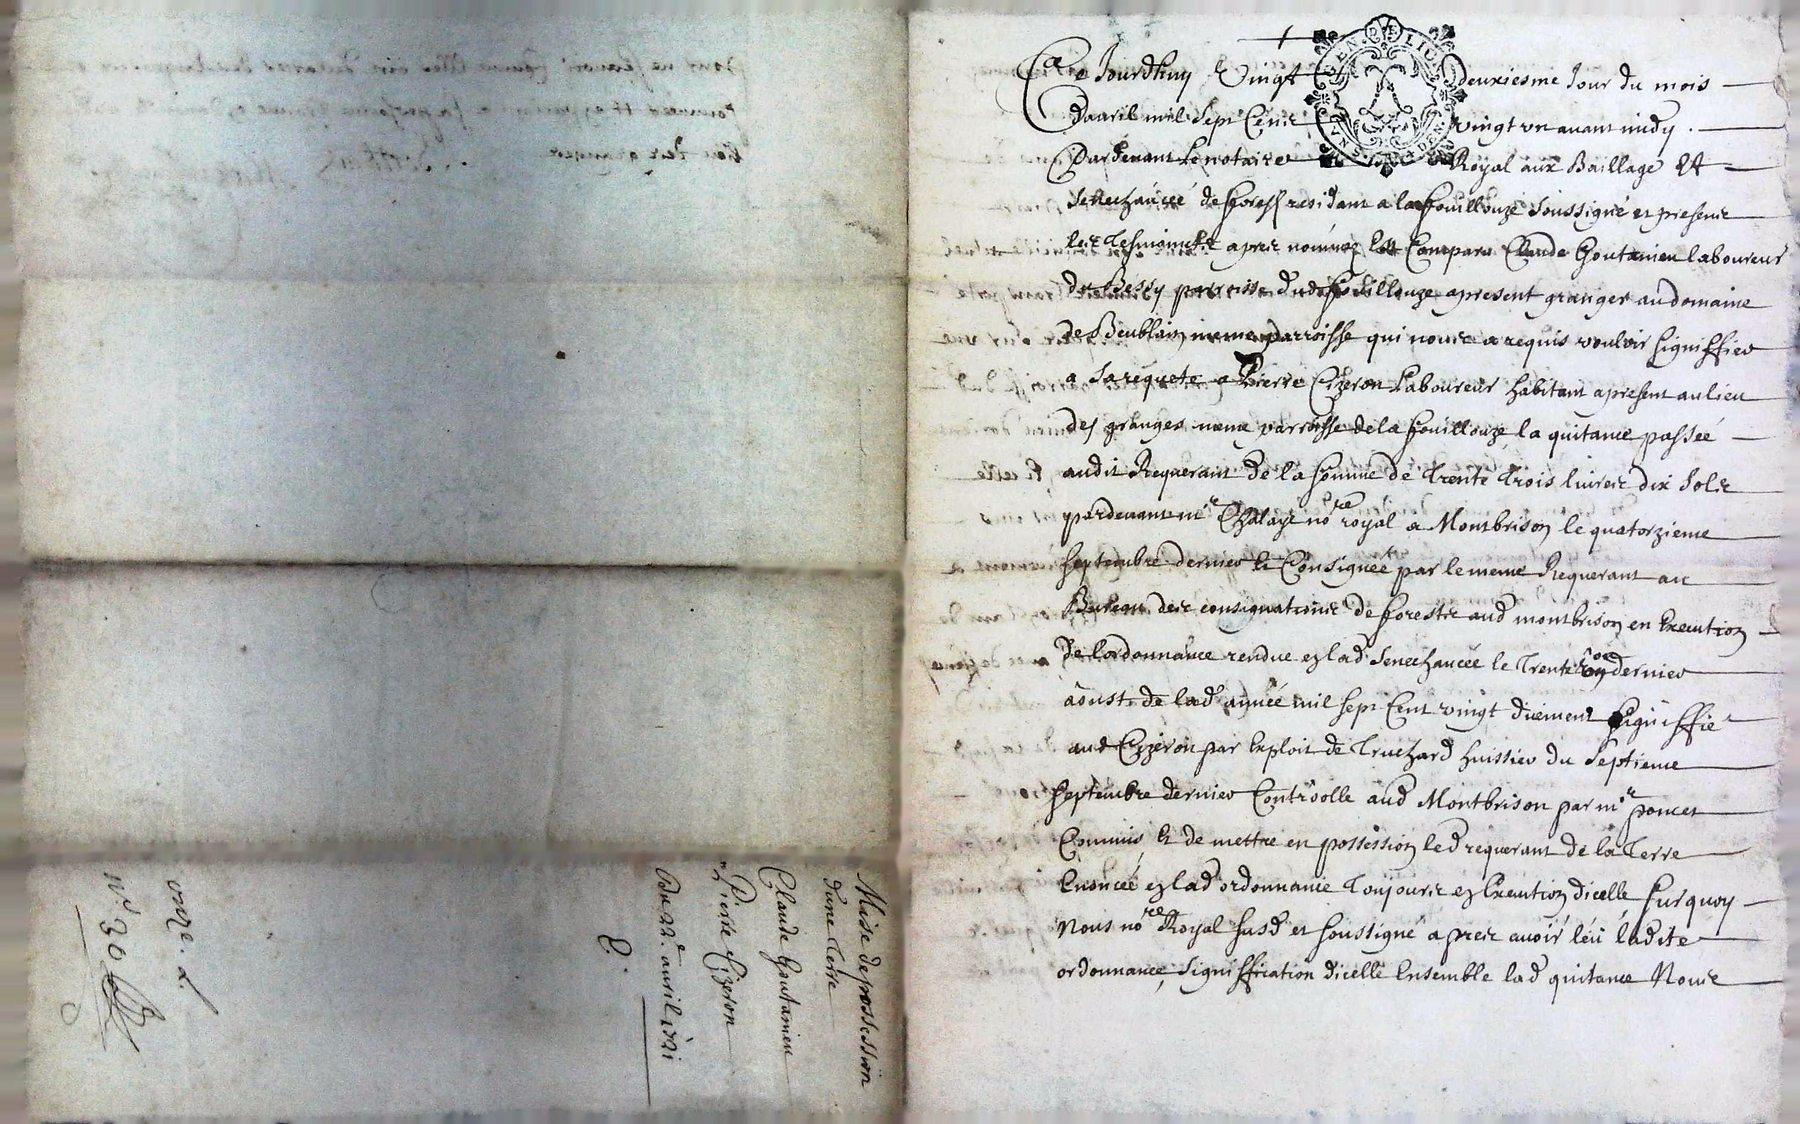 Ce Jourdhuy Vingt deuxiesme Jour du mois
davril mil Sept Cent vingt un avant midy.
Pardevant Le notaire Royal aux Baillage Et
Senechaucée de fforest residant a la ffouillouze soussigné et presents
les Tesmoints apres nommez Est Comparu Claude Goutanieu laboureur
du Bessy parroisse dud ffouillouze apresent granger au domaine
de Beublain meme parroisse qui nous a requis vouloir signiffier
a sa requete a Pierre Cizeron Laboureur habitant apresent au lieu
des granges meme parroisse de la ffouillouze la quitance passée
audit Requerant de la somme de Trente Trois livres dix sols
pardevant mr Chalaye nore royal a Montbrison le quatorzieme
septembre dernier Et Consignée par le meme Requerant au
Bureau des consignations de fforests aud montbrison en Execution
de lordonnance rendue en lad Senechaucée le Trente dernier
aoust de lad année mil sept Cent vingt duement signiffié
aud Cizeron par Exploit de Truchard huissier du Septieme
septembre dernier Controolle aud Montbrison par mr poncet
Commis Et de mettre en possession led requerant de la Terre
Enoncée en lad ordonnance Toujours en Execution dicelle surquoy
Nous nore Royal susd et soussigné apres avoir léü ladite
ordonnance, signiffication dicelle Ensemble lad quitance Nous
Mise de possession
dune Terre
Claude Goutanieu
Pierre Cizeron
Du 22e avril 1721
onze
no 30